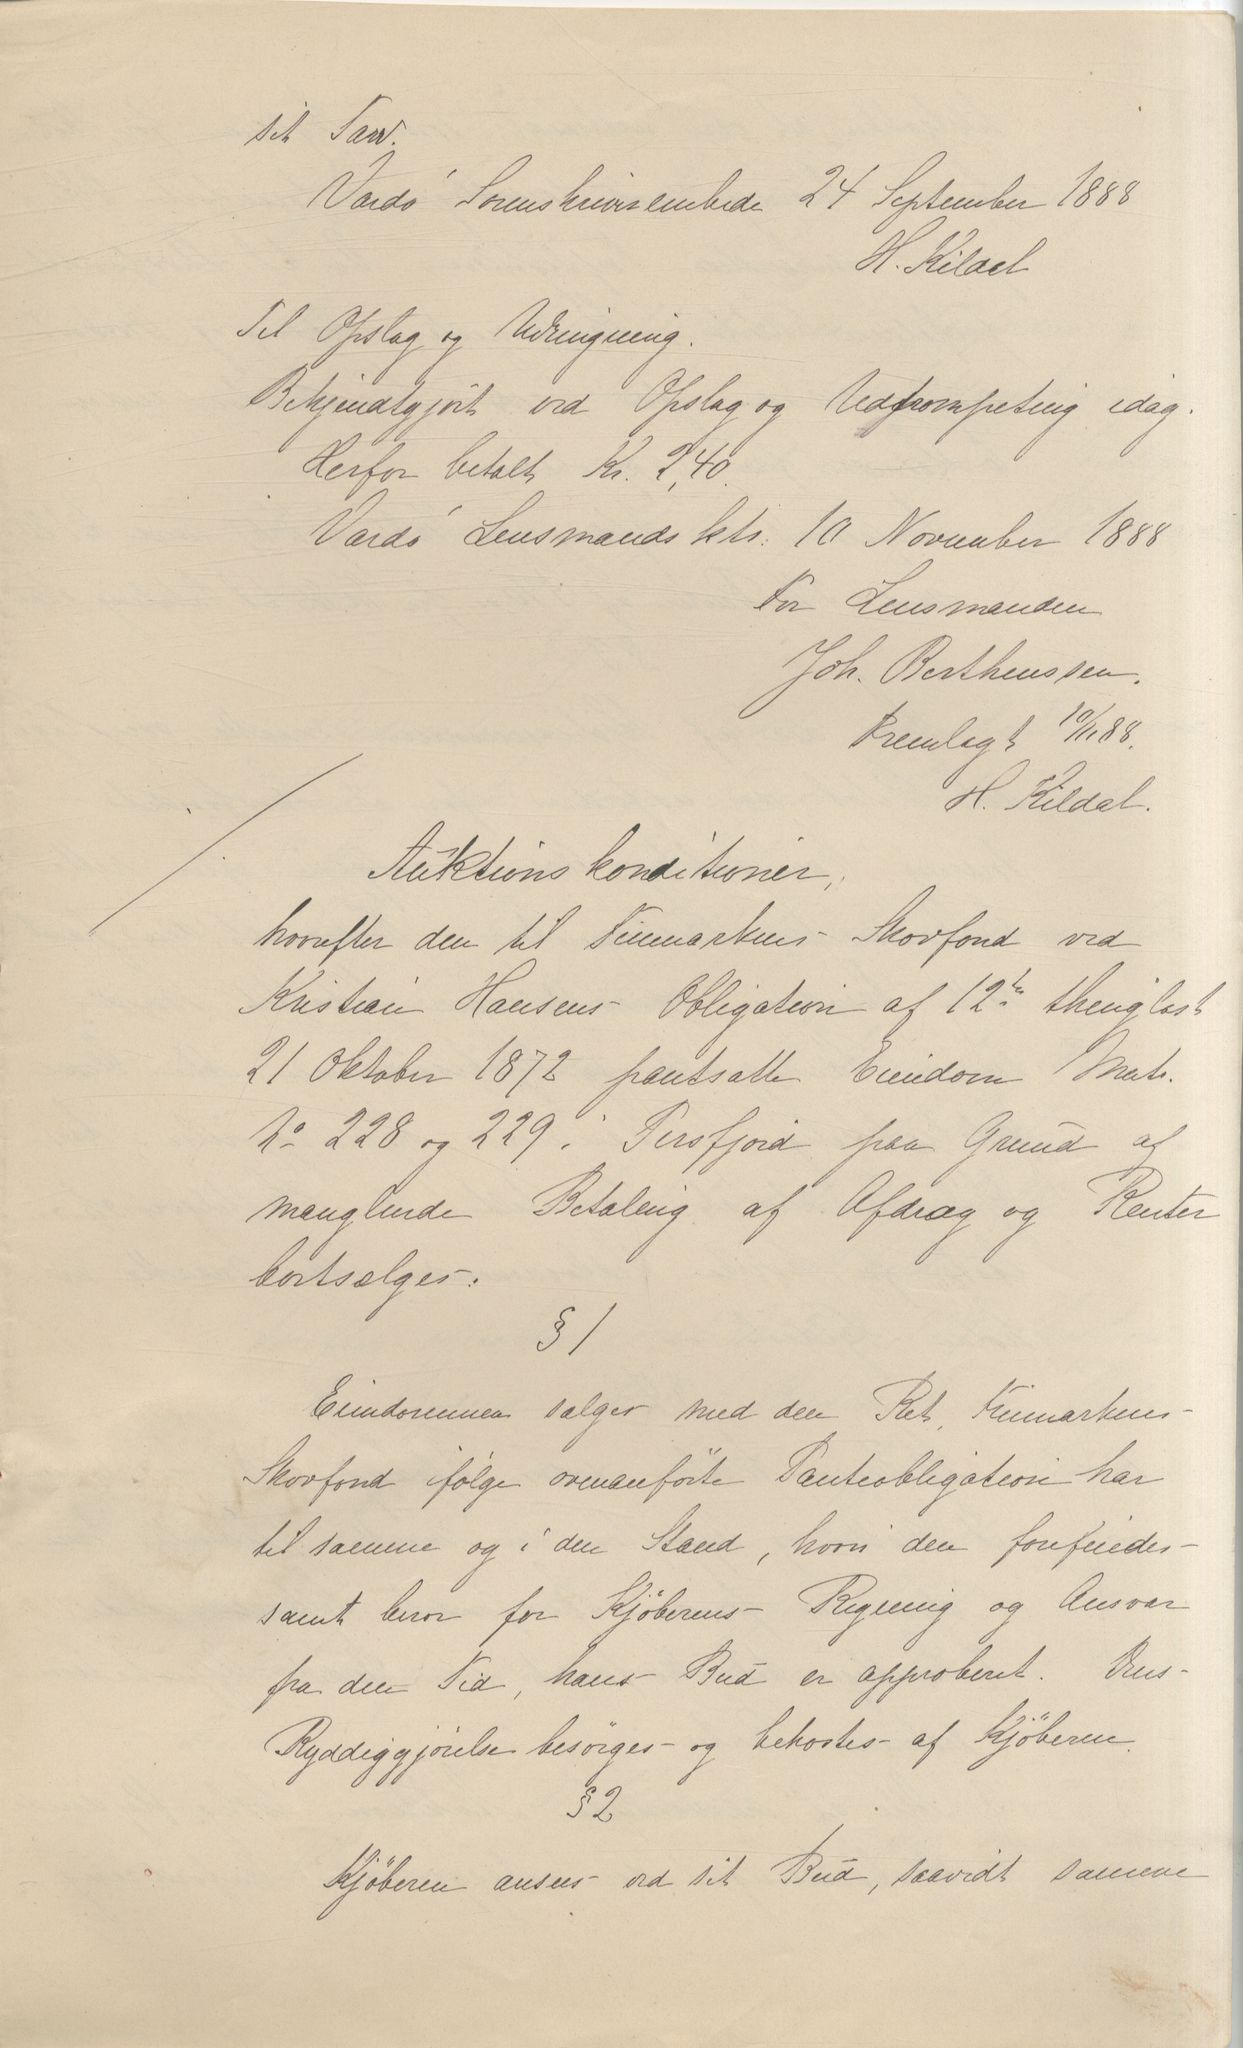 sit Tarv.
Vardö Sorenskriverembede 24 September 1888
H. Kildal
Til Opslag og Udringning.
Bekjendtgjört ved Opslag og Udtrompeting idag.
Herfor betalt Kr. 2,40.
Vardö Lensmandskts. 10 November 1888
For Lensmanden
Joh. Berthenssen.
Fremlagt 10/11 88.
H. Kildal.
Auktionskonditioner,
hvorefter den til Finmarkens Skovfond ved
Kristian Hansens Obligation af 12te thinglæst
21 Oktober 1872 pantsatte Eiendom Matr.
No 228 og 229 i Persfjord paa Grund af
manglende Betaling af Afdrag og Renter
bortsælges.
§ 1
Eiendommen sælges med den Ret, Finmarkens
Skovfond ifölge ovenanförte Panteobligation har
til samme og i den Stand, hvori den forefindes
samt beror for Kjöberens Regning og Ansvar
fra den Tid, hans Bud er approberet. Dens
Ryddiggjörelse besörges og bekostes af Kjöberen.
§ 2
Kjöberen ansees ved sit Bud, saavidt samme